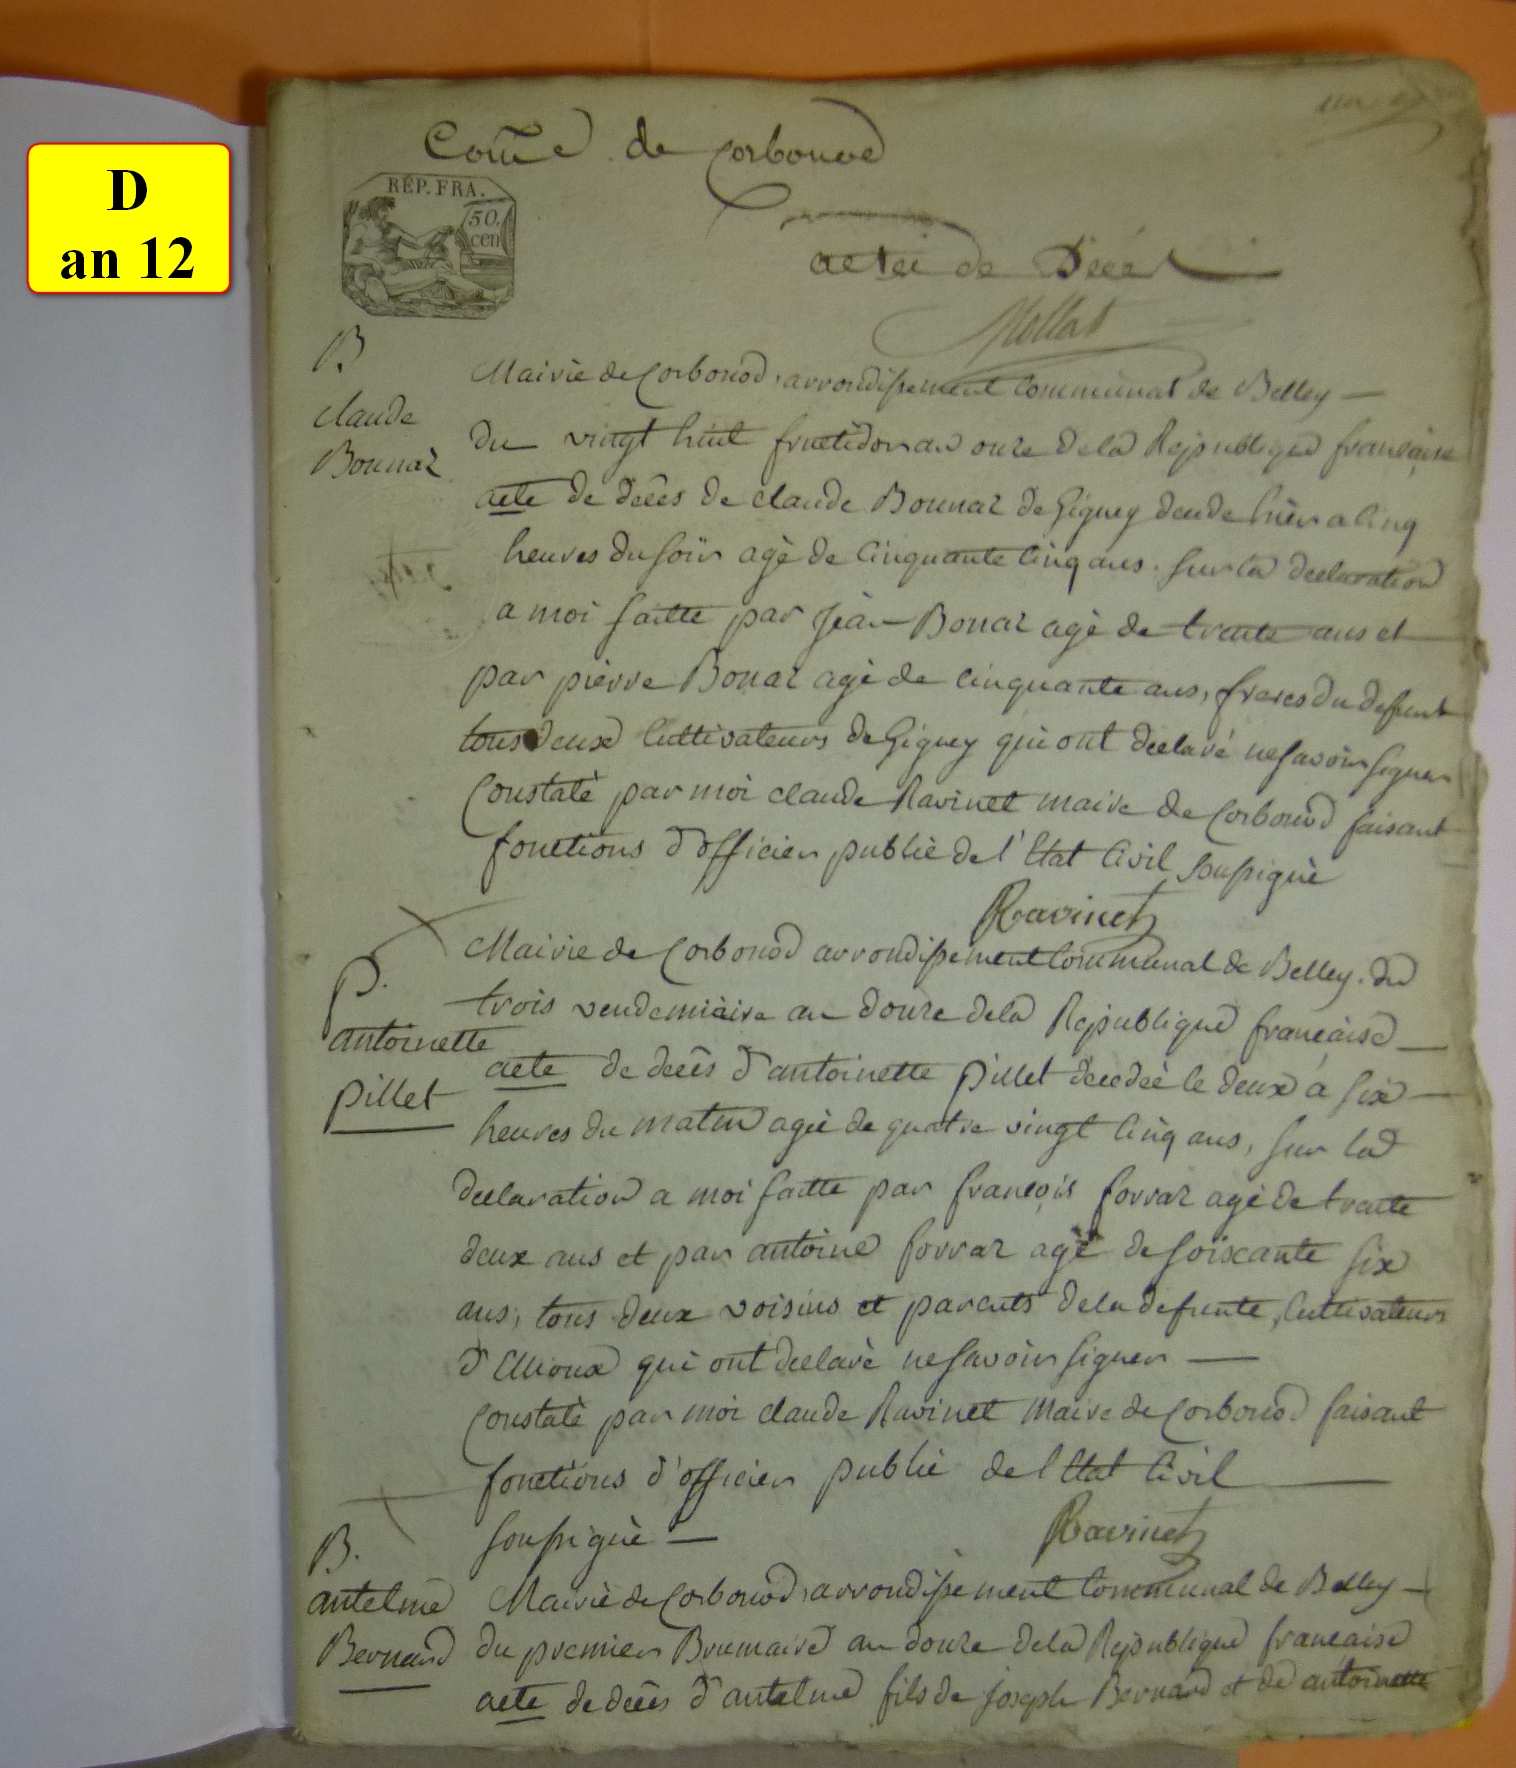 D
an 12
Com͠e de Corbonod
REP. FRA.
50.
cen
actes de Décès
Mollat
B
claude
Bonnaz
Mairie de Corbonod, arrondissement Communal de Belley —
du vingt huit fructidor an onze de la Republique française
acte de décès de claude Bonnaz de Gigney décédé hièr a cinq
heures du soir agè de Cinquante Cinq ans. Sur la declaration
a moi faitte par jèan Bonaz agè de trente ans et
par pièrre Bonaz agè de cinquante ans, freres du defunt
tous deux Cultivateurs de Gigney qui ont déclaré ne savoir signer
Constatè par moi claude Ravinet maire de Corbonod faisant
fonctions d'officier public de l'Etat Civil soussignè
Ravinet
P.
antoinette
pillet
Mairie de Corbonod arrondissement Communal de Belley. du
trois vendemiaire an douze de la Republique françaisé
acte de décès d'antoinette pillet décedée le deux à six
heures du matin agèe de quatre vingt Cinq ans, sur la
declaration a moi faitte par françois forraz agè de trente
deux ans et par antoine forraz agè de soixante six
ans, tous deux voisins et parents de la defunte, Cultivateurs
d'Etrioux qui ont declarè ne savoir signer —
Constatè par moi claude Ravinet Maire de Corbonod faisant
fonctions d'officier public de l Etat Civil
soussignè —
Ravinet
B.
antelme
Bernard
Mairie de Corbonod, arrondissement Communal de Belley —
du premier Brumaire an douze de la Republique française
acte de décès d'antelme fils de joseph Bernard et de antoinette